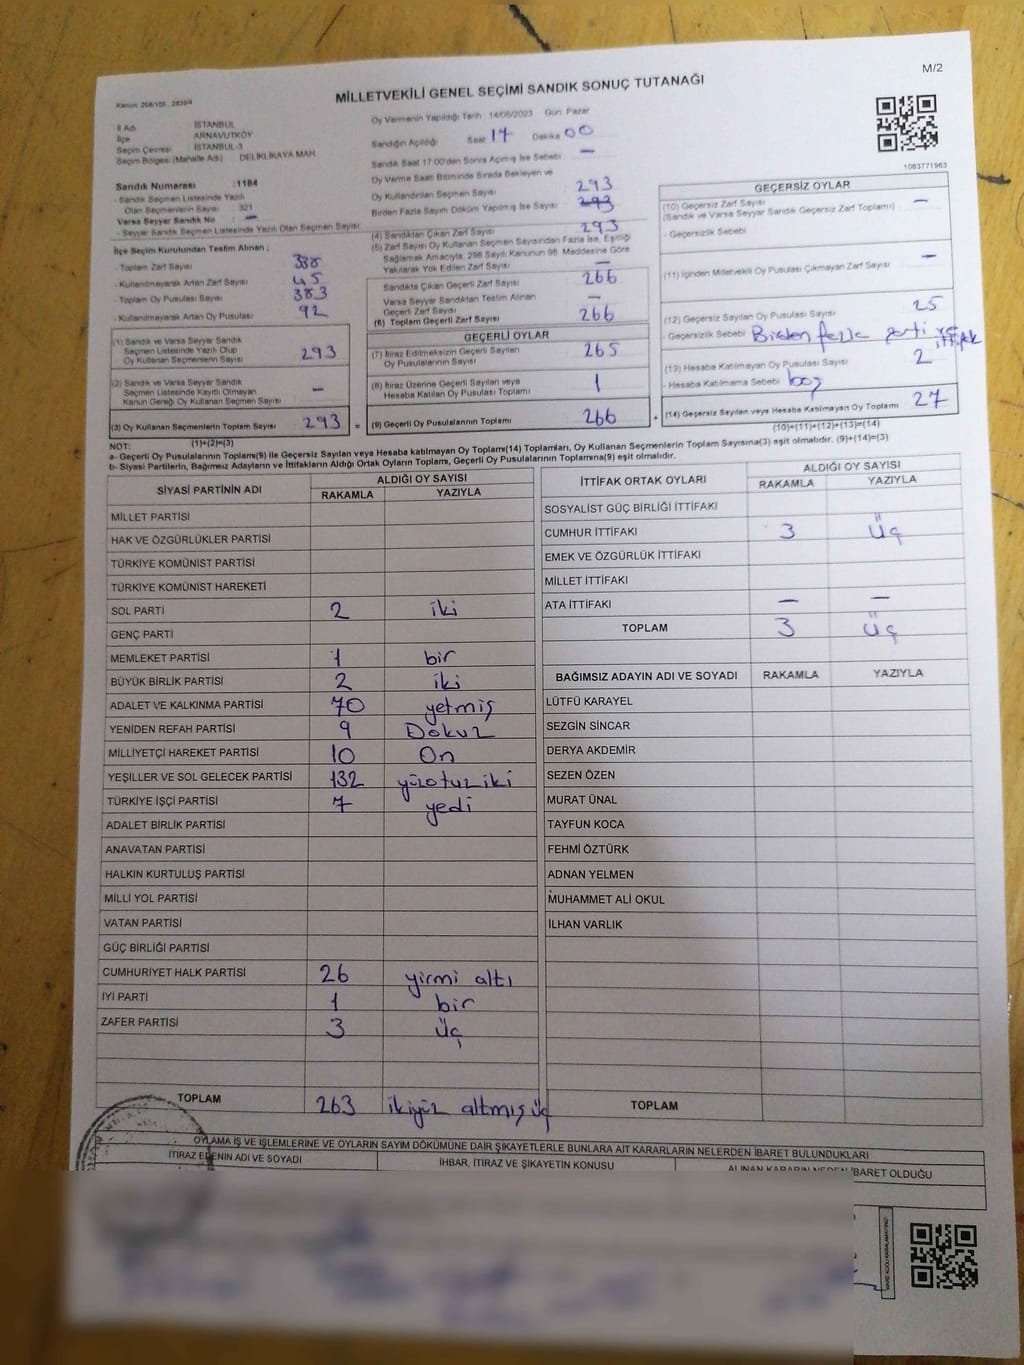 M/2
MİLLETVEKİLİ GENEL SEÇİMİ SANDIK SONUÇ TUTANAĞI
İl Adı İSTANBUL
İlçe ARNAVUTKÖY
Seçim Çevresi İSTANBUL-3
Seçim Bölgesi (Mahalle Adı) DELİKLİKAYA MAH.
Sandık Numarası :1184
- Sandık Seçmen Listesinde Yazılı
Olan Seçmenlerin Sayısı: 321
Varsa Seyyar Sandık No : —
- Seyyar Sandık Seçmen Listesinde Yazılı Olan Seçmen Sayısı
İlçe Seçim Kurulundan Teslim Alınan ;
- Toplam Zarf Sayısı 338
- Kullanılmayarak Artan Zarf Sayısı 45
- Toplam Oy Pusulası Sayısı 383
- Kullanılmayarak Artan Oy Pusulası 92
(1) Sandık ve Varsa Seyyar Sandık
Seçmen Listesinde Yazılı Olup
Oy Kullanan Seçmenlerin Sayısı 293
(2) Sandık ve Varsa Seyyar Sandık
Seçmen Listesinde Kayıtlı Olmayan
Kanun Gereği Oy Kullanan Seçmen Sayısı —
(3) Oy Kullanan Seçmenlerin Toplam Sayısı 293
(1)+(2)=(3)
Oy Vermenin Yapıldığı Tarih : 14/05/2023 Gün: Pazar
Sandığın Açıldığı Saat 17 Dakika 00
Sandık Saat 17:00'den Sonra Açılmış İse Sebebi —
Oy Verme Saati Bitiminde Sırada Bekleyen ve
Oy Kullandırılan Seçmen Sayısı 293
Birden Fazla Sayım Döküm Yapılmış İse Sayısı 293
(4) Sandıktan Çıkan Zarf Sayısı 293
(5) Zarf Sayısı Oy Kullanan Seçmen Sayısından Fazla İse, Eşitliği
Sağlamak Amacıyla, 298 Sayılı Kanunun 98. Maddesine Göre
Yakılarak Yok Edilen Zarf Sayısı —
Sandıkta Çıkan Geçerli Zarf Sayısı 266
Varsa Seyyar Sandıktan Teslim Alınan
Geçerli Zarf Sayısı —
(6) Toplam Geçerli Zarf Sayısı 266
GEÇERLİ OYLAR
(7) İtiraz Edilmeksizin Geçerli Sayılan
Oy Pusulalarının Sayısı 265
(8) İtiraz Üzerine Geçerli Sayılan veya
Hesaba Katılan Oy Pusulası Toplamı 1
= (9) Geçerli Oy Pusulalarının Toplamı 266 +
1083771963
GEÇERSİZ OYLAR
(10) Geçersiz Zarf Sayısı —
(Sandık ve Varsa Seyyar Sandık Geçersiz Zarf Toplamı)
- Geçersizlik Sebebi
(11) İçinden Milletvekili Oy Pusulası Çıkmayan Zarf Sayısı —
(12) Geçersiz Sayılan Oy Pusulası Sayısı 25
- Geçersizlik Sebebi Birden fazla parti ve ittifak
(13) Hesaba Katılmayan Oy Pusulası Sayısı 2
- Hesaba Katılmama Sebebi boş
(14) Geçersiz Sayılan veya Hesaba Katılmayan Oy Toplamı 27
(10)+(11)+(12)+(13)=(14)
NOT:
a- Geçerli Oy Pusulalarının Toplam(9) ile Geçersiz Sayılan veya Hesaba katılmayan Oy Toplam(14) Toplamları, Oy Kullanan Seçmenlerin Toplam Sayısına(3) eşit olmalıdır. (9)+(14)=(3)
b- Siyasi Partilerin, Bağımsız Adayların ve İttifakların Aldığı Ortak Oyların Toplamı, Geçerli Oy Pusulalarının Toplamına(9) eşit olmalıdır.
SİYASİ PARTİNİN ADI ALDIĞI OY SAYISI
RAKAMLA YAZIYLA
MİLLET PARTİSİ
HAK VE ÖZGÜRLÜKLER PARTİSİ
TÜRKİYE KOMÜNİST PARTİSİ
TÜRKİYE KOMÜNİST HAREKETİ
SOL PARTİ 2 iki
GENÇ PARTİ
MEMLEKET PARTİSİ 1 bir
BÜYÜK BİRLİK PARTİSİ 2 iki
ADALET VE KALKINMA PARTİSİ 70 yetmiş
YENİDEN REFAH PARTİSİ 9 Dokuz
MİLLİYETÇİ HAREKET PARTİSİ 10 On
YEŞİLLER VE SOL GELECEK PARTİSİ 132 yüzotuziki
TÜRKİYE İŞÇİ PARTİSİ 7 yedi
ADALET BİRLİK PARTİSİ
ANAVATAN PARTİSİ
HALKIN KURTULUŞ PARTİSİ
MİLLİ YOL PARTİSİ
VATAN PARTİSİ
GÜÇ BİRLİĞİ PARTİSİ
CUMHURİYET HALK PARTİSİ 26 yirmi altı
İYİ PARTİ 1 bir
ZAFER PARTİSİ 3 üç
TOPLAM 263 ikiyüz altmış üç
İTTİFAK ORTAK OYLARI ALDIĞI OY SAYISI
RAKAMLA YAZIYLA
SOSYALİST GÜÇ BİRLİĞİ İTTİFAKI
CUMHUR İTTİFAKI 3 üç
EMEK VE ÖZGÜRLÜK İTTİFAKI
MİLLET İTTİFAKI
ATA İTTİFAKI — —
TOPLAM 3 üç
BAĞIMSIZ ADAYIN ADI VE SOYADI RAKAMLA YAZIYLA
LÜTFÜ KARAYEL
SEZGİN SİNCAR
DERYA AKDEMİR
SEZEN ÖZEN
MURAT ÜNAL
TAYFUN KOCA
FEHMİ ÖZTÜRK
ADNAN YELMEN
MUHAMMET ALİ OKUL
İLHAN VARLIK
TOPLAM
OYLAMA İŞ VE İŞLEMLERİNE VE OYLARIN SAYIM DÖKÜMÜNE DAİR ŞİKAYETLERLE BUNLARA AİT KARARLARIN NELERDEN İBARET BULUNDUKLARI
İTİRAZ EDENİN ADI VE SOYADI İHBAR, İTİRAZ VE ŞİKAYETİN KONUSU ALINAN KARARIN NEDEN İBARET OLDUĞU